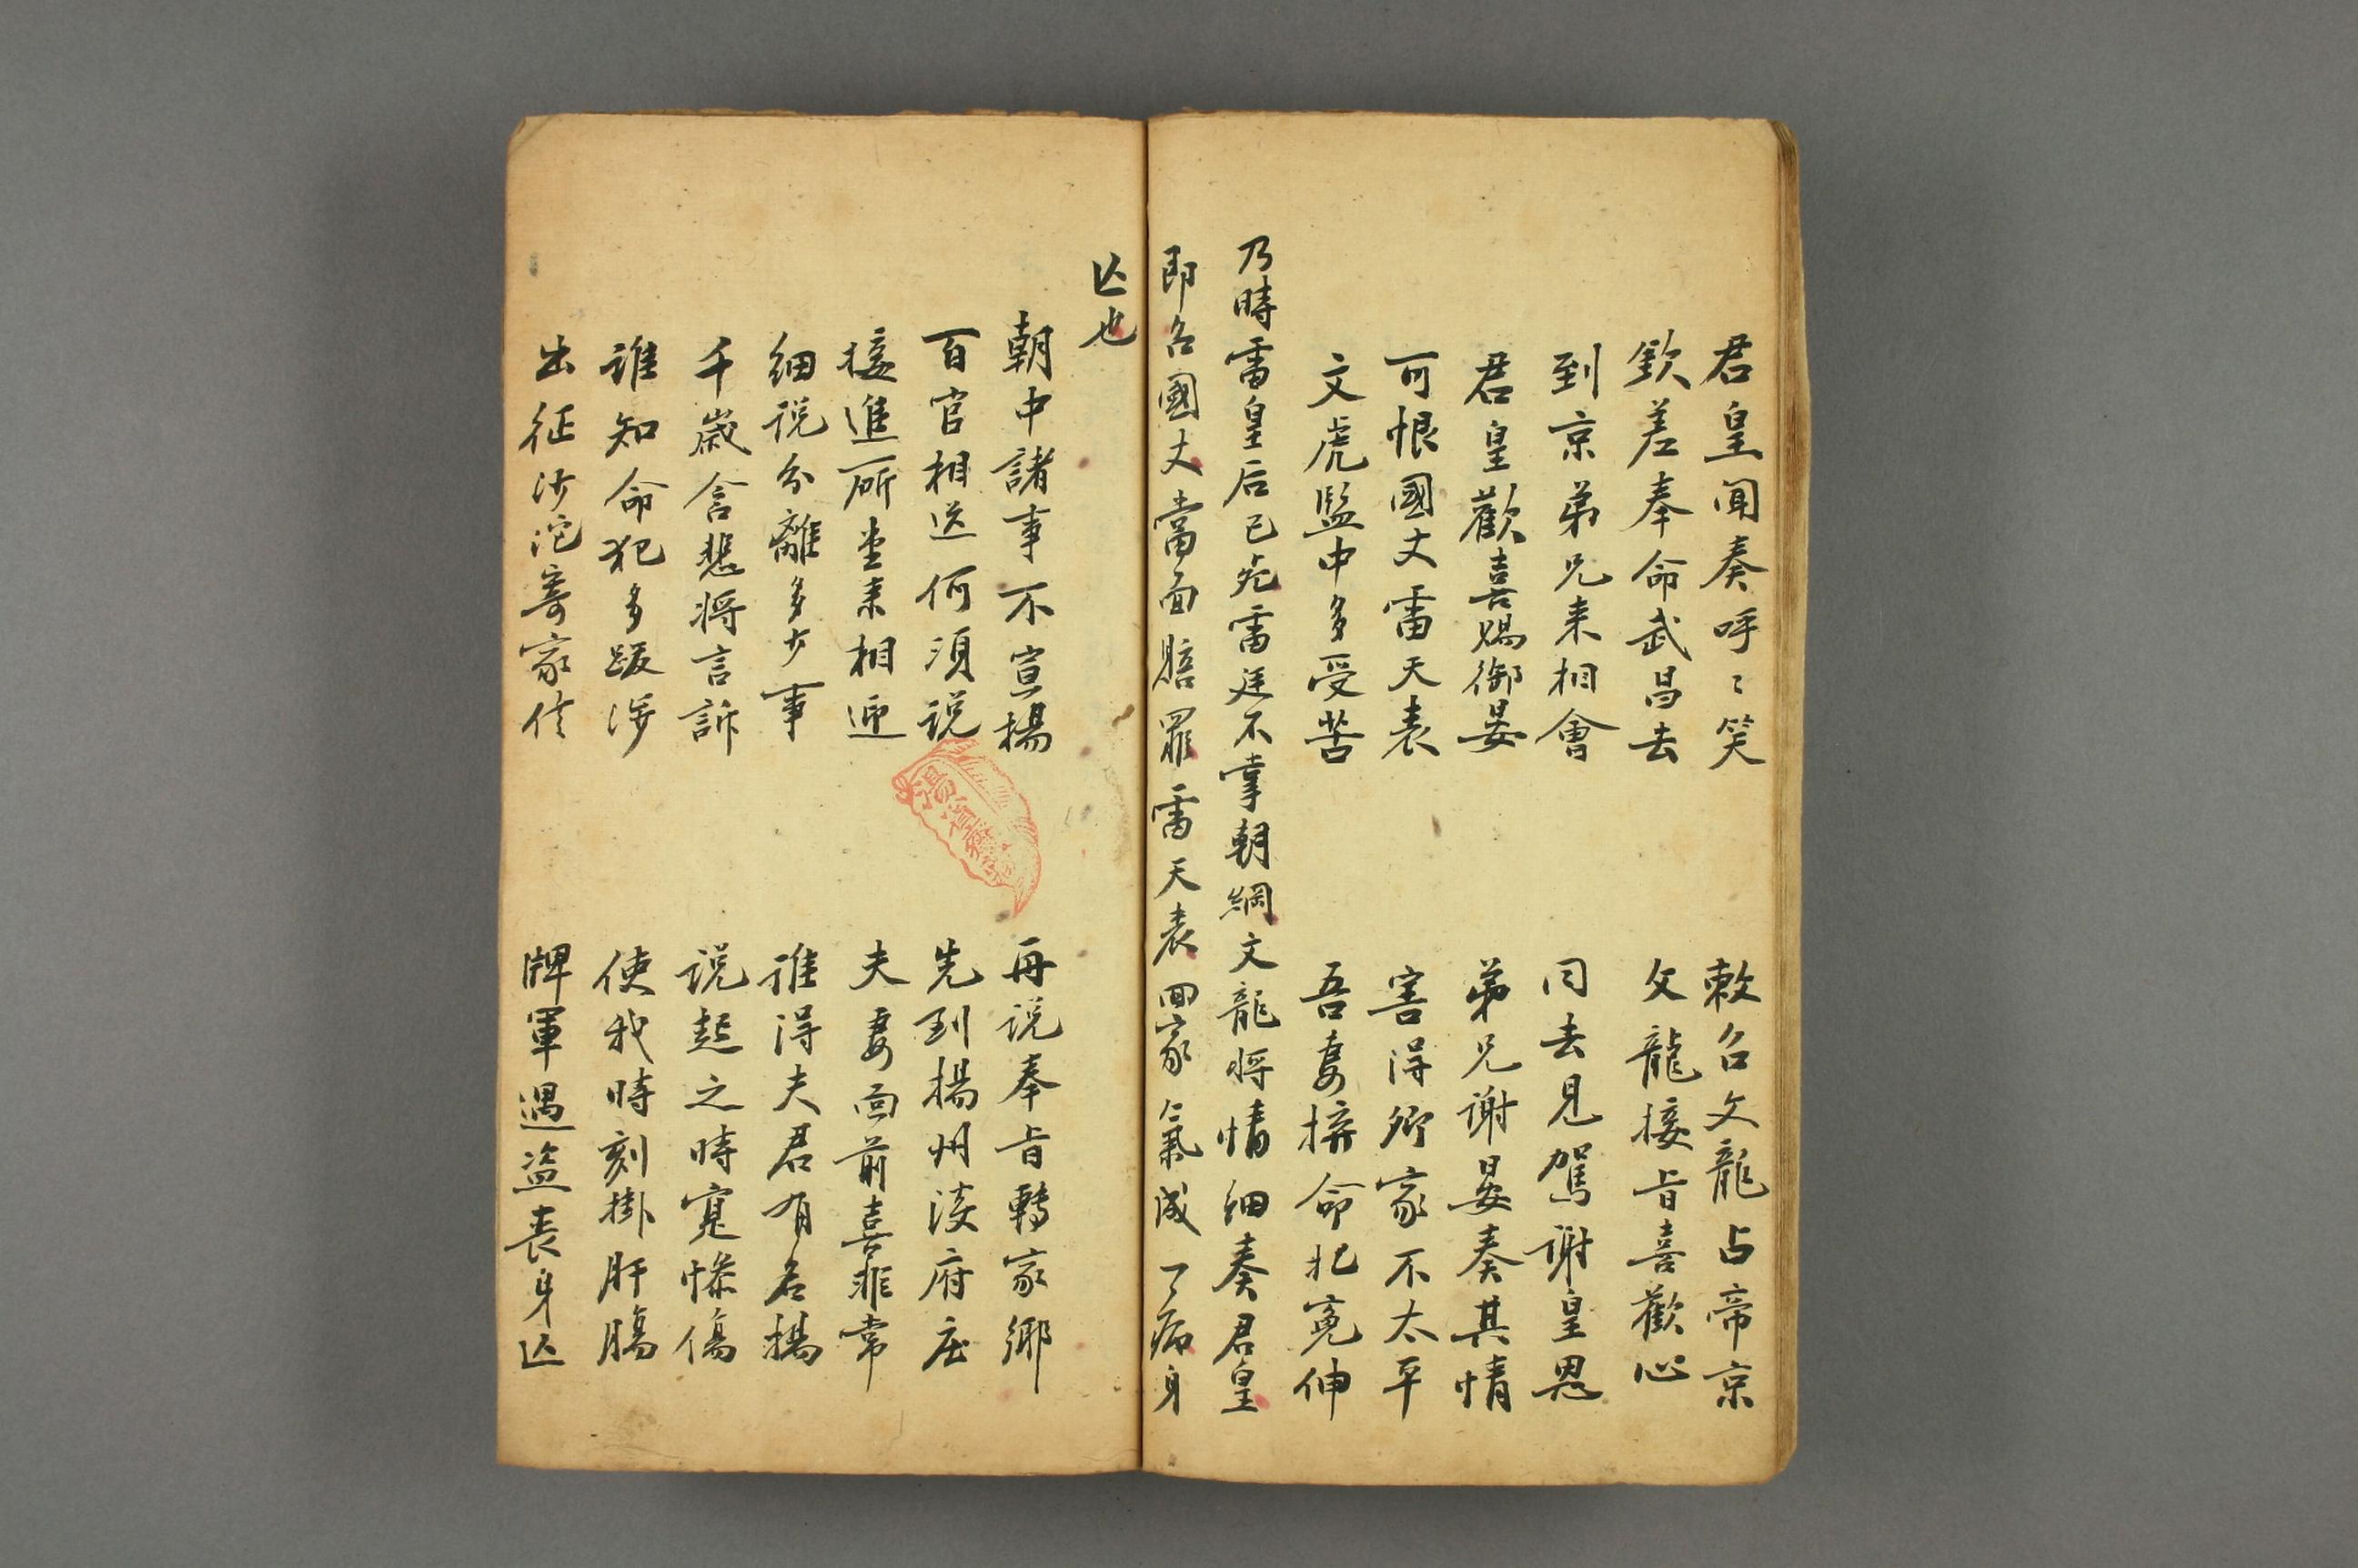 君皇聞奏呼〻笑　敕召文龍占帝京
欽差奉命武昌去　文龍接旨喜歡心
到京弟兄来相會　同去見駕謝皇恩
君皇歡喜賜御晏　弟兄謝晏奏其情
可恨國丈雷天表　害得卿家不太平
文虎監中多受苦　吾妻拚命把冤伸
乃時雷皇后已死雷廷不掌朝綱文龍将情細奏君皇
即召國丈當面賠罪雷天表回家氣成一病身
亾也
朝中諸事不宣揚　再说奉旨轉家鄉
百官相送何須说　先到揚州淩府庄
接進㕔堂来相迎　夫妻面前喜非常
細说分離多少事　誰得夫君有名揚
千歲含悲将言訴　说起之時寬慘傷
誰知命犯多跋涉　使我時刻掛肝膓
出征沙沱寄家信　牌軍遇盗丧身亾